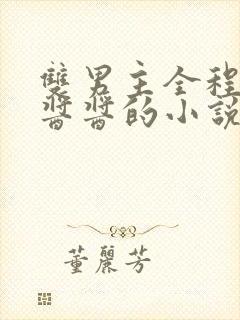 雙男主全程
醬醬的小說
董麗芳